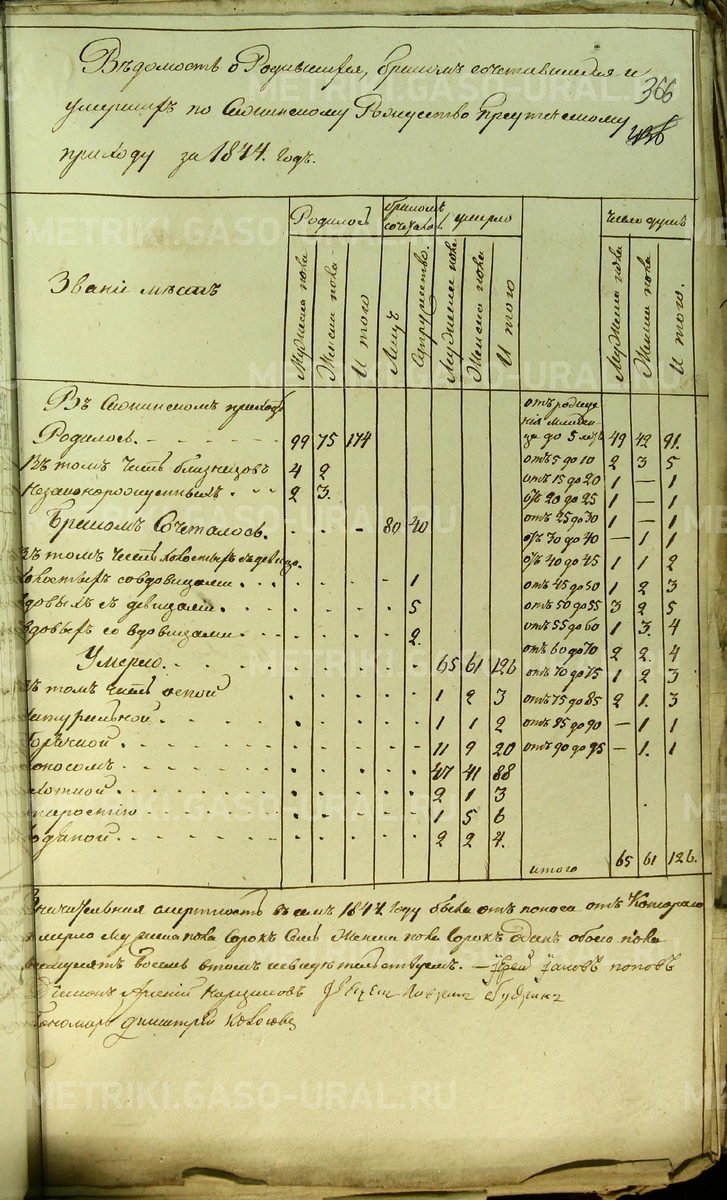 Вѣдомость о Родившихся, бракомъ сочетавшихся и
366
умершихъ по Сажинскому Рождество Предтечскому
приходу за 1844. годъ.
Званіе мѣстъ
Родилось
бракомъ сочеталось
умерло
число душъ
Мужеска пола
Женска пола
И того
Лицъ
Супружество.
Мужеска пола
Женска пола
И того
Мужеска пола
Женска пола
И того.
Въ Сажинскомъ приходѣ
отъ рожде
нія младен
Родилось. 99 75 174 ца до 5 лѣтъ 49 42 91.
Въ томъ числѣ близнецовъ 4 2 отъ 5 до 10 2 3 5
незаконорожденныхъ. 2 3. отъ 15 до 20 1 — 1
отъ 20 до 25 1 — 1
Бракомъ Сочеталось. 80 40 отъ 25 до 30 1 — 1
отъ 30 до 40 — 1 1
въ томъ числѣ холостыхъ съ девицами отъ 40 до 45 1 1 2
холостыхъ со вдовицами 1 отъ 45 до 50 1 2 3
вдовыхъ съ девицами. 5 отъ 50 до 55 3 2 5
вдовыхъ со вдовицами 2. отъ 55 до 60 1 3. 4
Умерло. 65 61 126 отъ 60 до 70 2 2. 4
отъ 70 до 75 1 2 3
въ томъ числѣ оспой 1 2 3 отъ 75 до 85 2 1. 3
натуральной 1 1 2 отъ 85 до 90 — 1 1
Горячкой 11 9 20 отъ 90 до 95 — 1. 1
поносомъ 47 41 88
2 1 3
старостію 1 5 6
водяной 2 2 4.
итого 65 61 126.
Значительная смертность въ семъ 1844 году была отъ поноса отъ Котораго
умерло мужеска пола Сорокъ Семь Женска пола Сорокъ одинъ обоего пола
восемьдесятъ восемь въ томъ и свидетельствуемъ. — Иерей Іаковъ поповъ
Пономарь Димитрій
METRIKI.GASO-URAL.RU